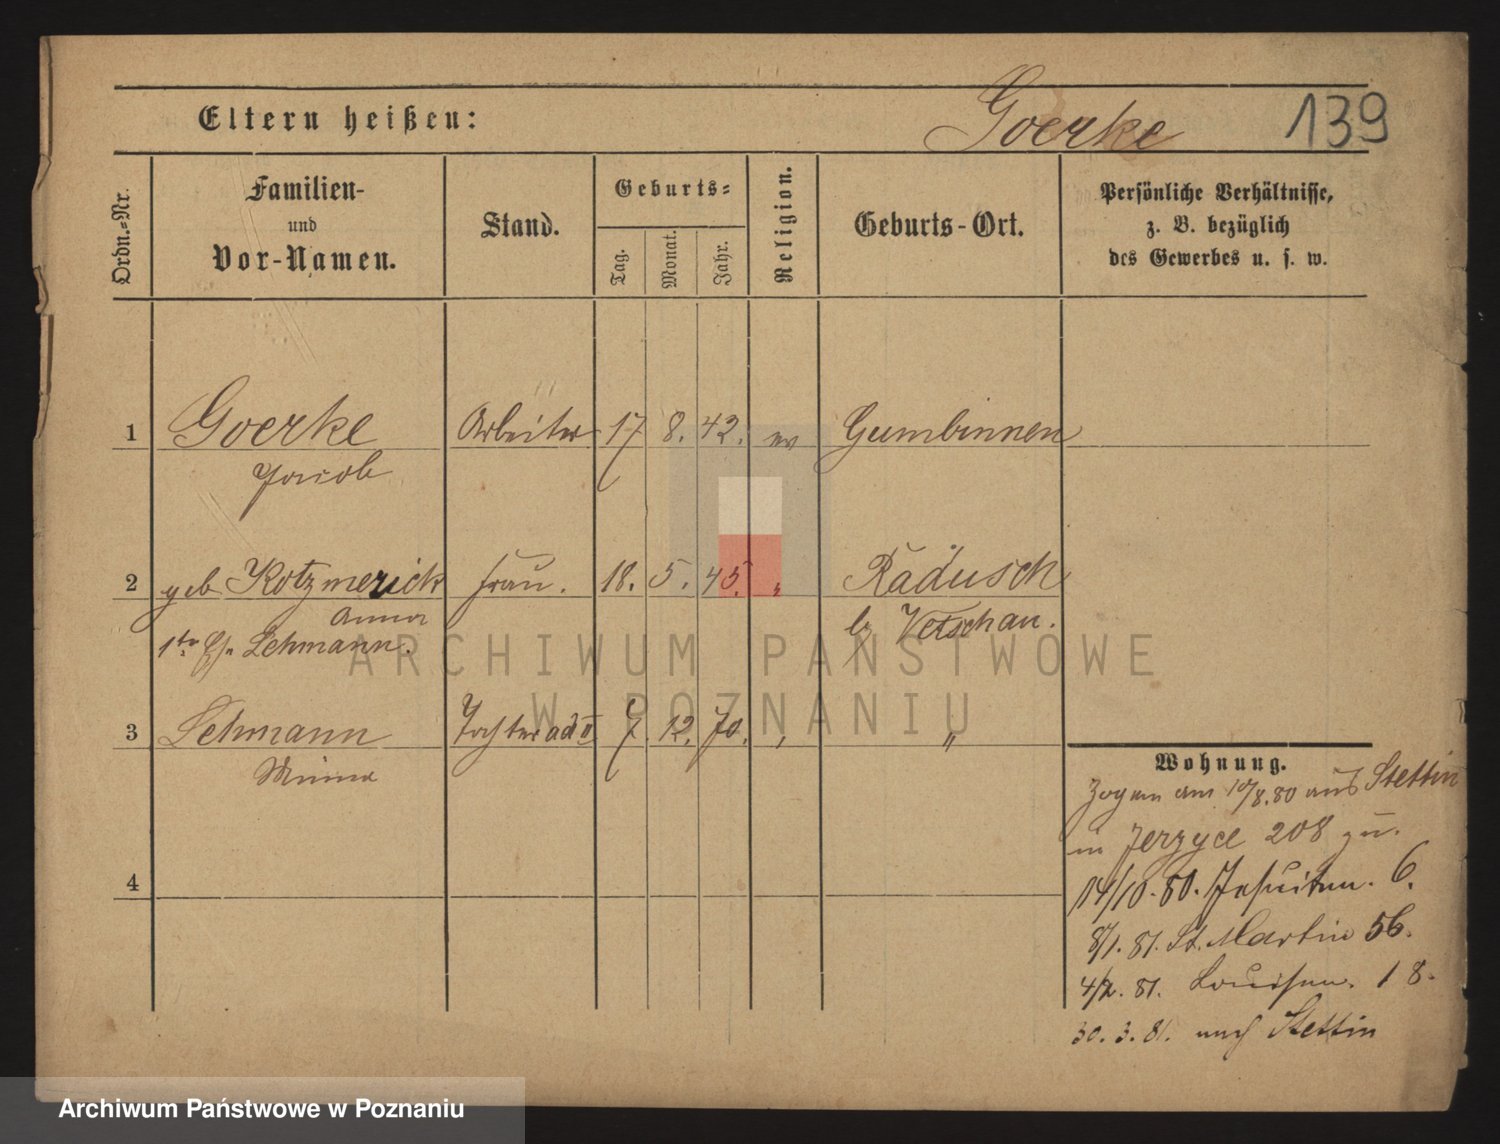 Eltern heißen: Goerke 139
Ordn.-Nr.
Familien-
und
Vor-Namen.
Stand.
Geburts-
Tag.
Monat.
Jahr.
Religion.
Geburts-Ort.
Persönliche Verhältnisse,
z. B. bezüglich
des Gewerbes u. s. w.
1 Goerke Arbeiter 17 8. 42. ev Gumbinnen
Jacob
2 geb Kotzmerick Frau. 18. 5. 45. " Radusch
Anna b/ Vetschau.
1te Eh. Lehmann.
3 Lehmann Tochter ad II 7. 12. 70. " "
Minna
4
Wohnung.
Zogen am 10/8.80 aus Stettin
in Jerzyce 208 zu.
14/10.80. Jesuiten. 6.
8/1. 81. St. Martin 56.
4/2. 81. Louisen. 18.
30. 3. 81. nach Stettin
ARCHIWUM PAŃSTWOWE
W POZNANIU
Archiwum Państwowe w Poznaniu